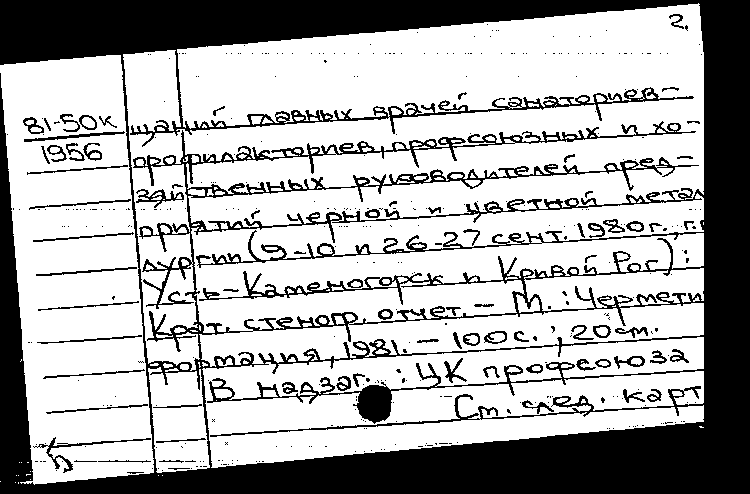 2.
81-50к щаний главных врачей санаториев-
1956 профилакториев, профсоюзных и хо-
зяйственных руководителей пред-
приятий черной и цветной метал
лургии (9-10 и 26-27 сент. 1980г., г.г
Усть-Каменогорск и Кривой Рог):
Крат. стеногр. отчет. - М.: Чермети
формация, 1981. - 100с.; 20см.
В надзаг.: ЦК профсоюза
См. след. карт